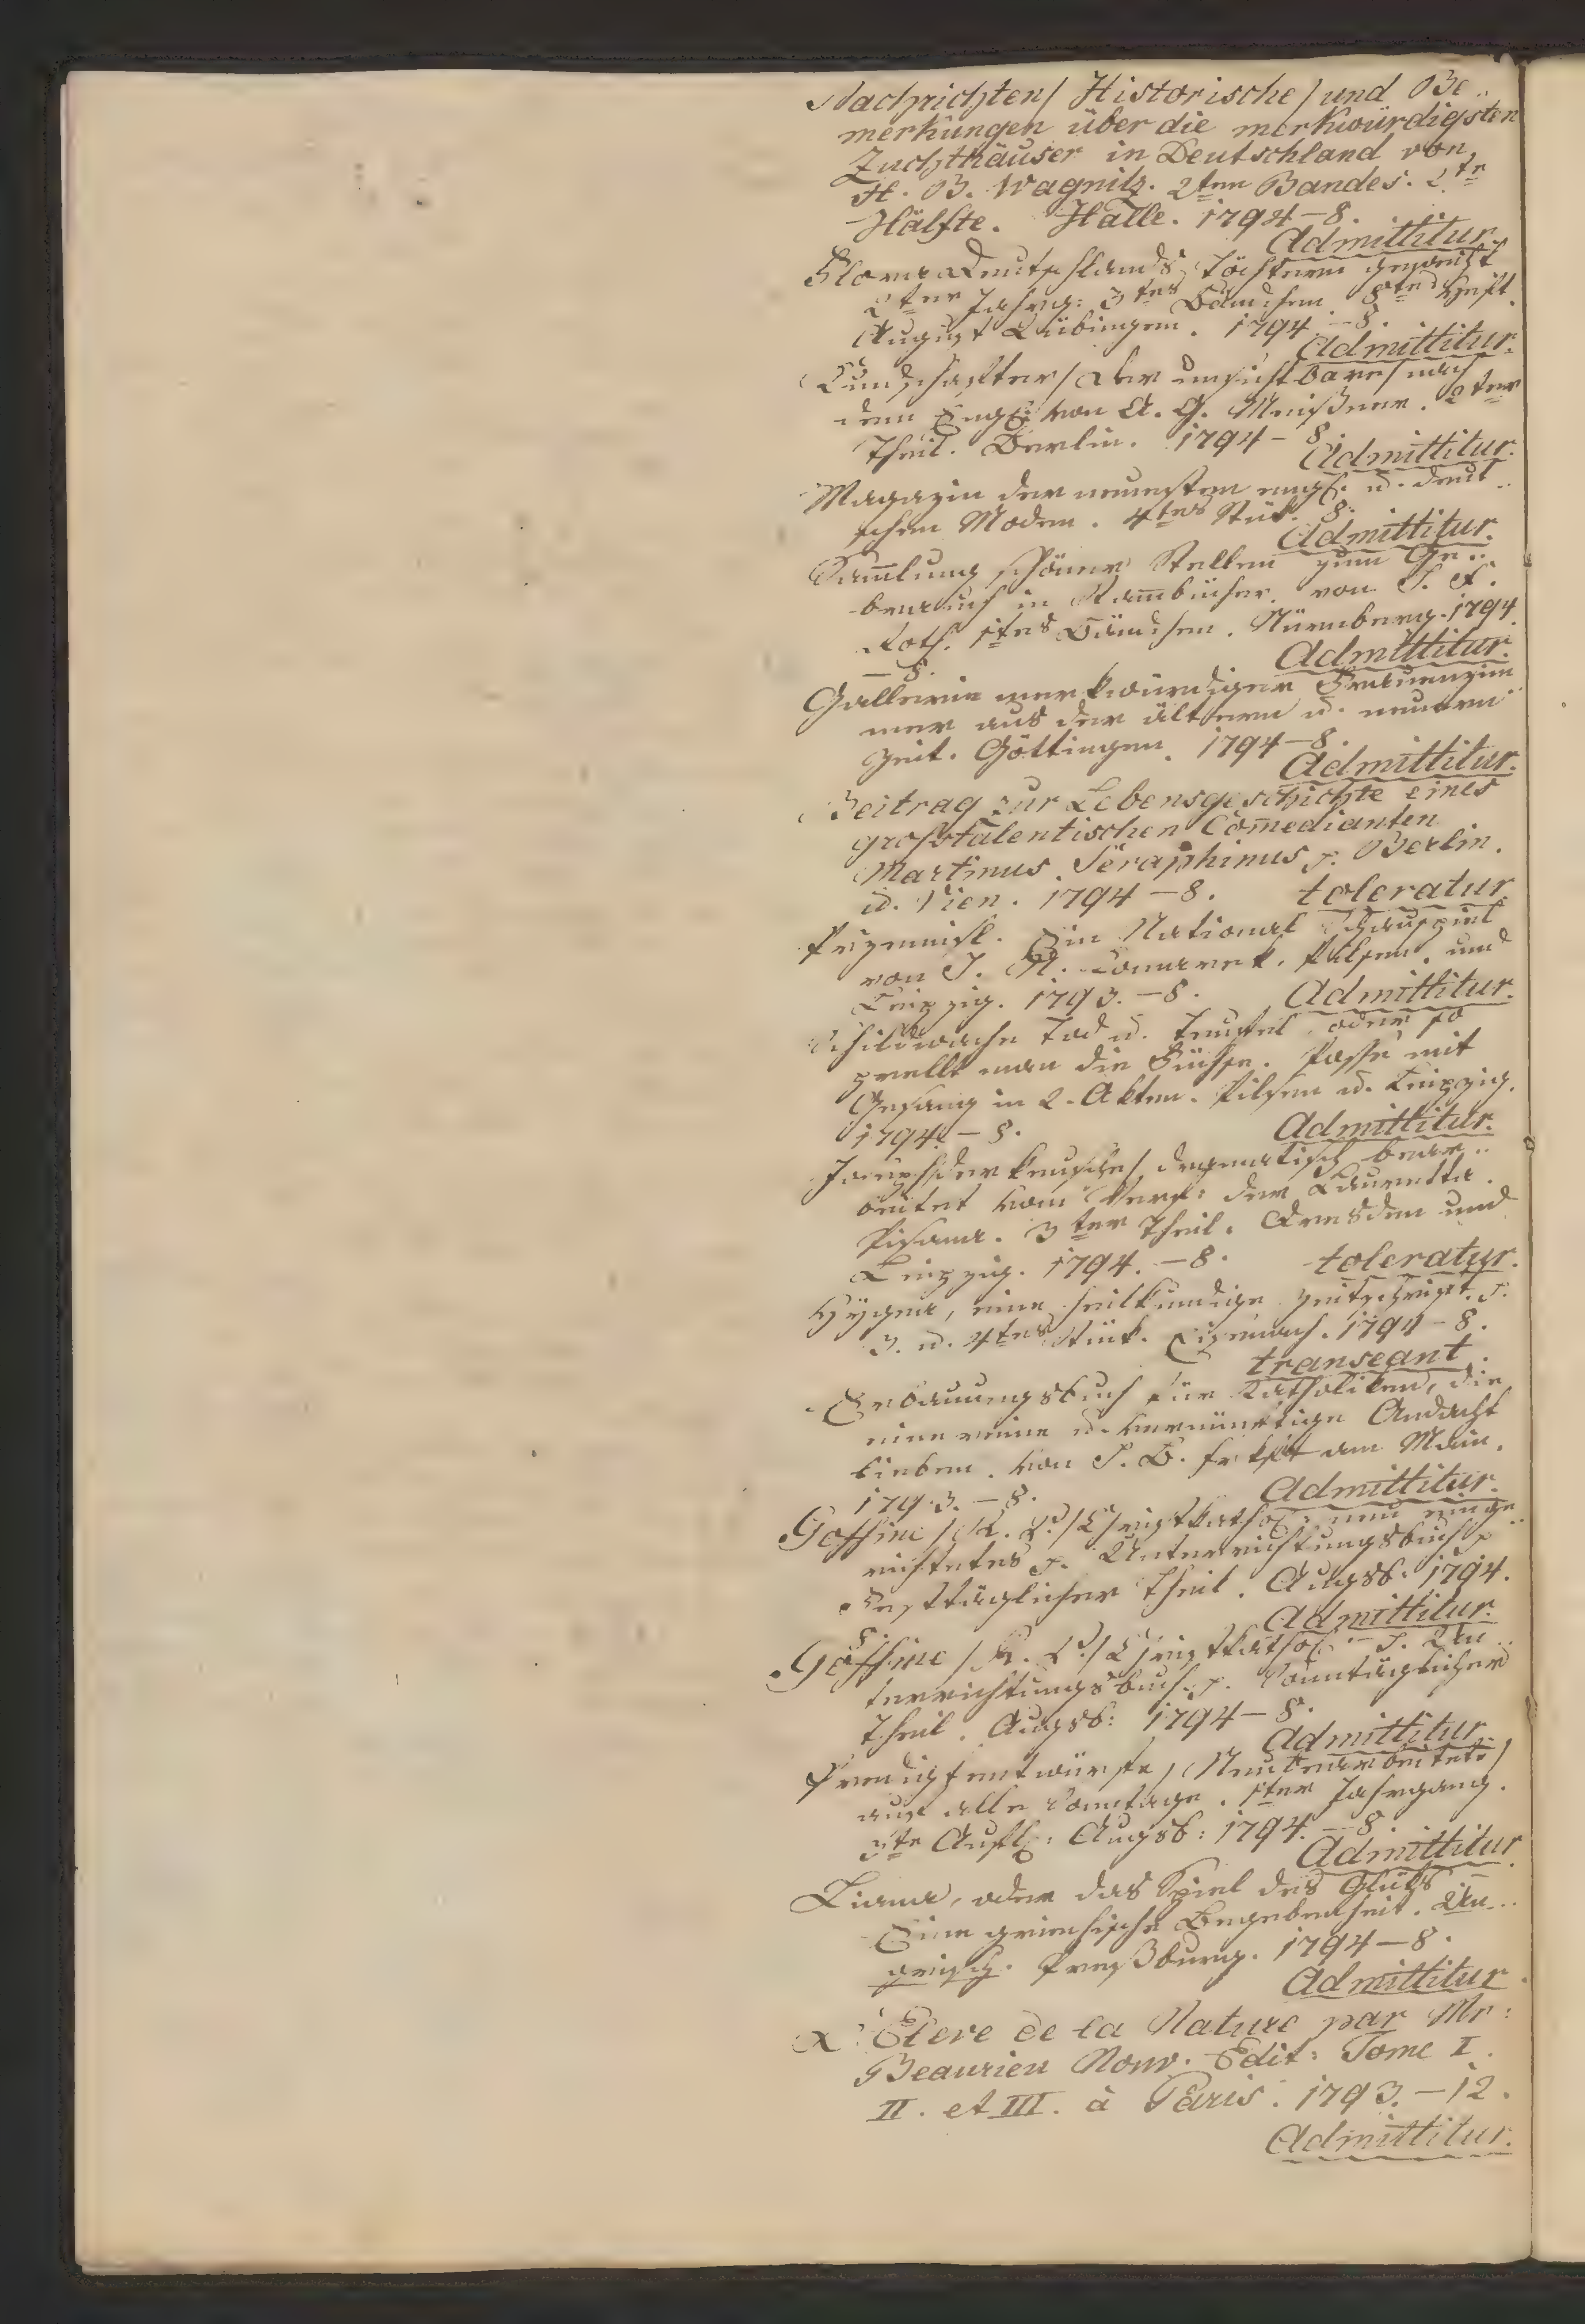 Nachrichten/ Historische/ und Be..
merkungen über die merkwürdigsten
Zuchthäuser in Deutschland von
H. B. Wagnitz. 2ten Bandes. 2te
Hälfte. Halle. 1794 – 8.
Admittitur.
Flora Deutschlands Töchtern geweiht
2ter Jahrg: 3tes Bändchen. 8tes Heft
August Tübingen. 1794 – 8.
Admittitur.
Kundschafter/ der unsichtbare/ nach
dem Engl: von A. G. Meißner. 2ter
Theil. Berlin. 1794 – 8.
Admittitur.
Magazin der neuesten engl. u. deut..
schen Moden. 4tes Stük. 8.
Admittitur.
Samlung schöner Stellen zum Ge..
brauch in Stambücher von J. F.
Roth. 1tes Bändchen. Nürnberg. 1794.
– 8. Admittitur.
Gallerie merkwürdiger Frauenzim
mer aus der ältern u. neuern
Zeit. Göttingen. 1794 – 8.
Admittitur.
Beitrag zur Lebensgeschichte eines
großtalentischen Comedianten
Martinus Seraphinus p. Berlin.
u. Wien. 1794 – 8. toleratur.
Przemisl. Ein National Schauspiel
von J. N. Komarek. Pilsen. und
Leipzig. 1793. – 8. Admittitur.
Schildwache Tod u. Teufel, oder so
prellt man die Füchse. Posse mit
Gesang in 2. Akten. Pilsen u. Leipzig.
1794. – 8. Admittitur.
Joseph/ der keusche/ dramatisch bear..
beitet vom Verf: der Lauretta
Pisana. 3ter Theil. Dresden und
Leipzig. 1794. – 8. toleratur.
Hygea, eine heilkundige Zeitschrift. p.
3. u. 4tes Stük. Eisenach. 1794 – 8.
transeant.
Erbauungsbuch für Katholiken, die
eine reine u. vernünftige Andacht
lieben. von J. B. frkfrt am Main.
1793. – 8. Admittitur.
Goffine / R. P./ Christkathol: neu einge..
richtetes p. Unterrichtungsbuch p
Festtäglicher Theil. Augsb: 1794.
8. Admittitur.
Goffine / R. P./ Christkathol: – p. Un..
terrichtungsbuch p. Sonntäglicher
Theil. Augsb: 1794 – 8.
Admittitur.
Predigtentwürfe/ Neubearbeitete/
auf alle Sonntage. 1ter Jahrgang.
3te Aufl: Augsb: 1794. – 8.
Admittitur.
Liana, oder das Spiel des Glüks
Eine griechische Begebenheit. Un..
grisch. Preßburg. 1794 – 8.
Admittitur.
L' Eleve de la Nature par Mr:
Beaurieu Nouv. Edit: Tome I.
II. et III. à Paris. 1793. – 12.
Admittitur.